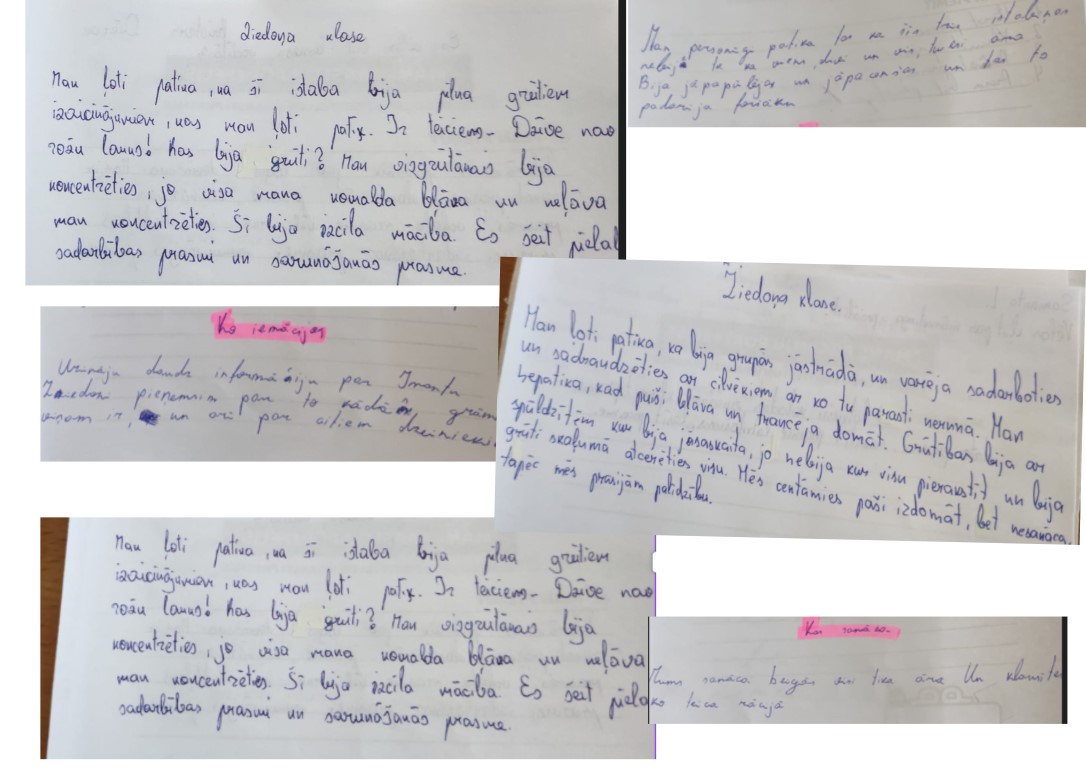 Ziedoņa klase
Man ļoti patika, ka šī istaba bija pilna grūtiem
izaicinājumiem, kas man ļoti patik. Ir teiciens- Dzīve nav
rožu lauks! Kas bija grūti? Man visgrūtākais bija
koncentrēties, jo visa mana komanda bļāva un neļāva
man koncentrēties. Šī bija izcila mācība. Es šeit pielae
sadarbības prasmi un sarunāšanās prasme.
Man personīgi patika tas ka šīs trīs istabiņas
nebij tā ka viens divi un viss, tu esi ārā
Bija jāpapūlējas un jāpacenšas un tas to
padarīja foršāku
Ko iemācijos
Uzzināju daudz informāciju par Imantu
Ziedoni piemēram par to kādā grām
viņam ir, un arī par citiem dzejniekie
Ziedoņa klase.
Man ļoti patika, ka bija grupās jāstrādā, un varēja sadarboties
un sadraudzēties ar cilvēkiem ar ko tu parasti nerunā. Man
nepatika, kad puiši bļāva un traucēja domāt. Grūtības bija ar
spuldzītēm kur bija jāsaskaita, jo nebija kur visu pierakstīt un bija
grūti skaļumā atcerēties visu. Mēs centāmies paši izdomāt, bet nesanāca,
tapēc mēs prasijām palīdzību.
Man ļoti patika, ka šī istaba bija pilna grūtiem
izaicinājumiem, kas man ļoti patik. Ir teiciens- Dzīve nav
rožu lauks! Kas bija grūti? Man visgrūtākais bija
koncentrēties, jo visa mana komanda bļāva un neļāva
man koncentrēties. Šī bija izcila mācība. Es šeit pielae
sadarbības prasmi un sarunāšanās prasme.
Kas sanāca.
Mums sanāca beigās visi tika ārā Un
ko teica